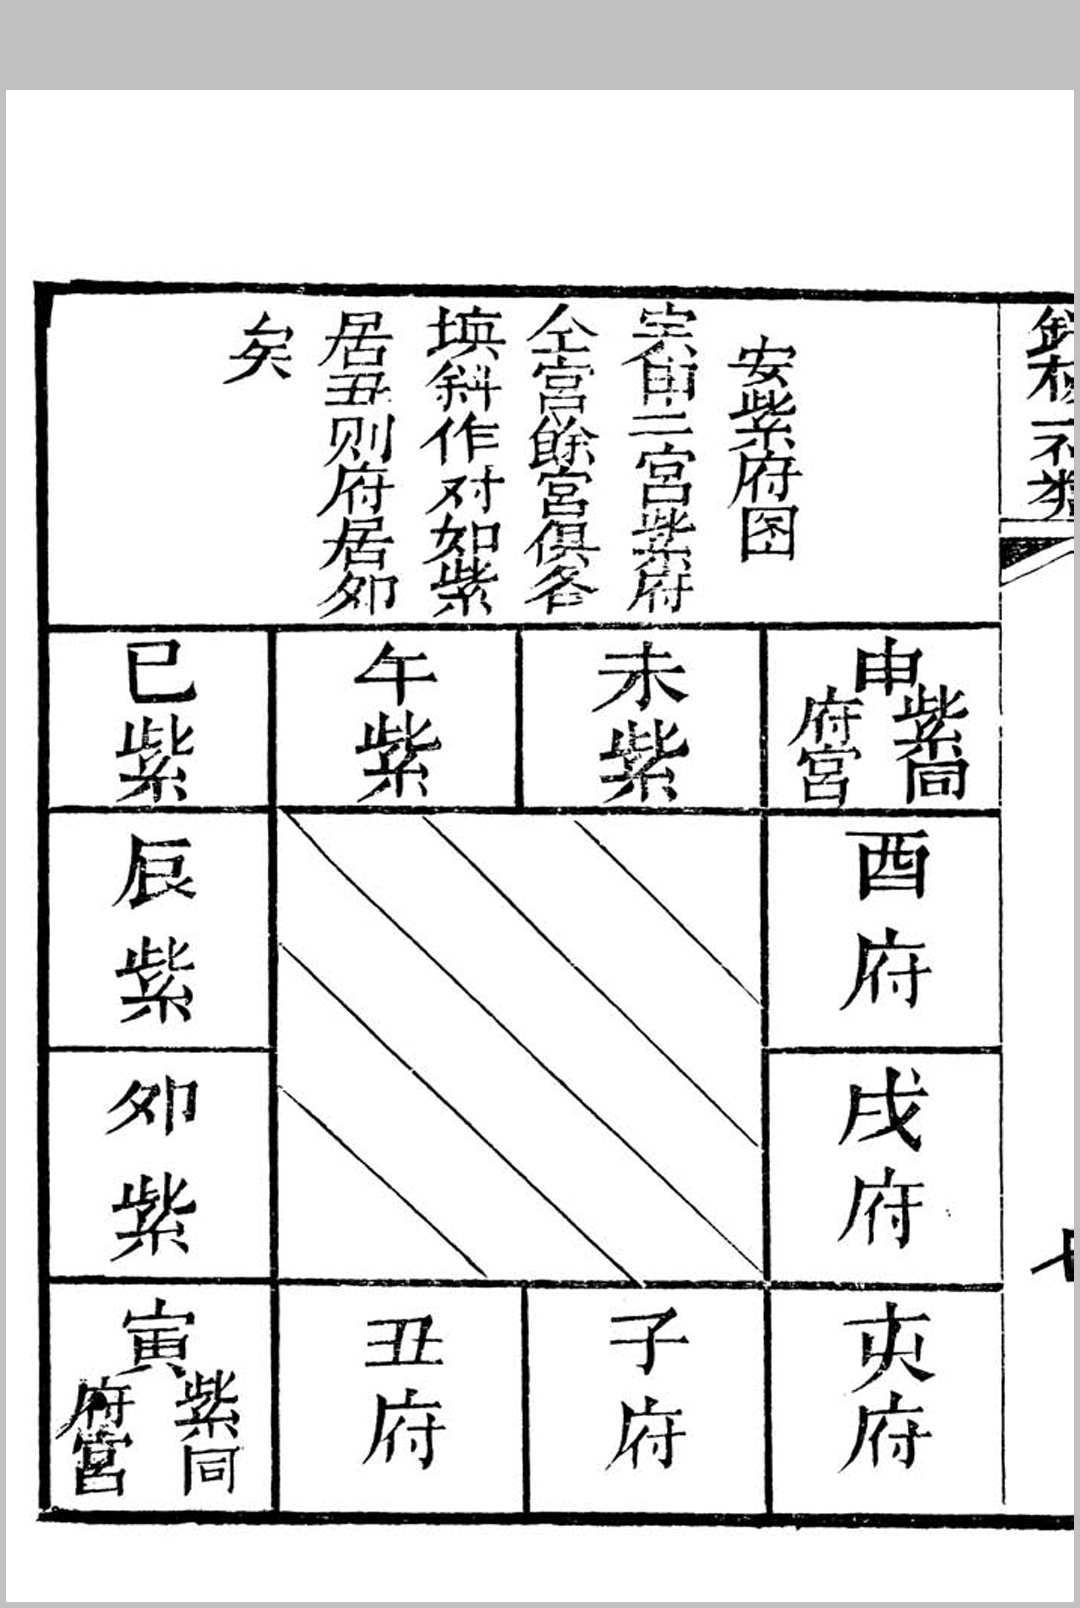 安紫府图
寅申二宮紫府
仝宮餘宮俱各
填斜作对如紫
居丑则府居夘
矣
申
紫同
府宮
未紫
午紫
巳紫
酉府
辰紫
戌府
夘紫
亥府
子府
丑府
寅
紫同
府宮